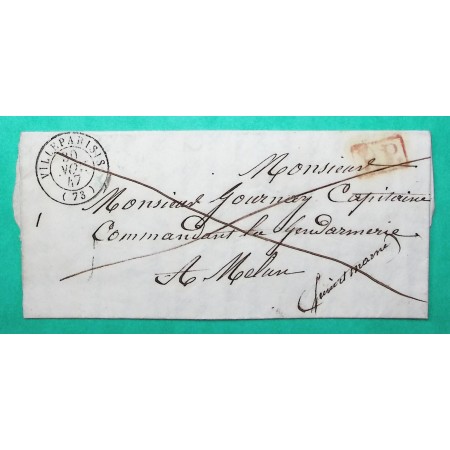 VILLEPARISIS
NOV.
47
(73)
P.P.
Monsieur
Monsieur Gournay Capitaine
Commandant la Gendarmerie
A Melun
1